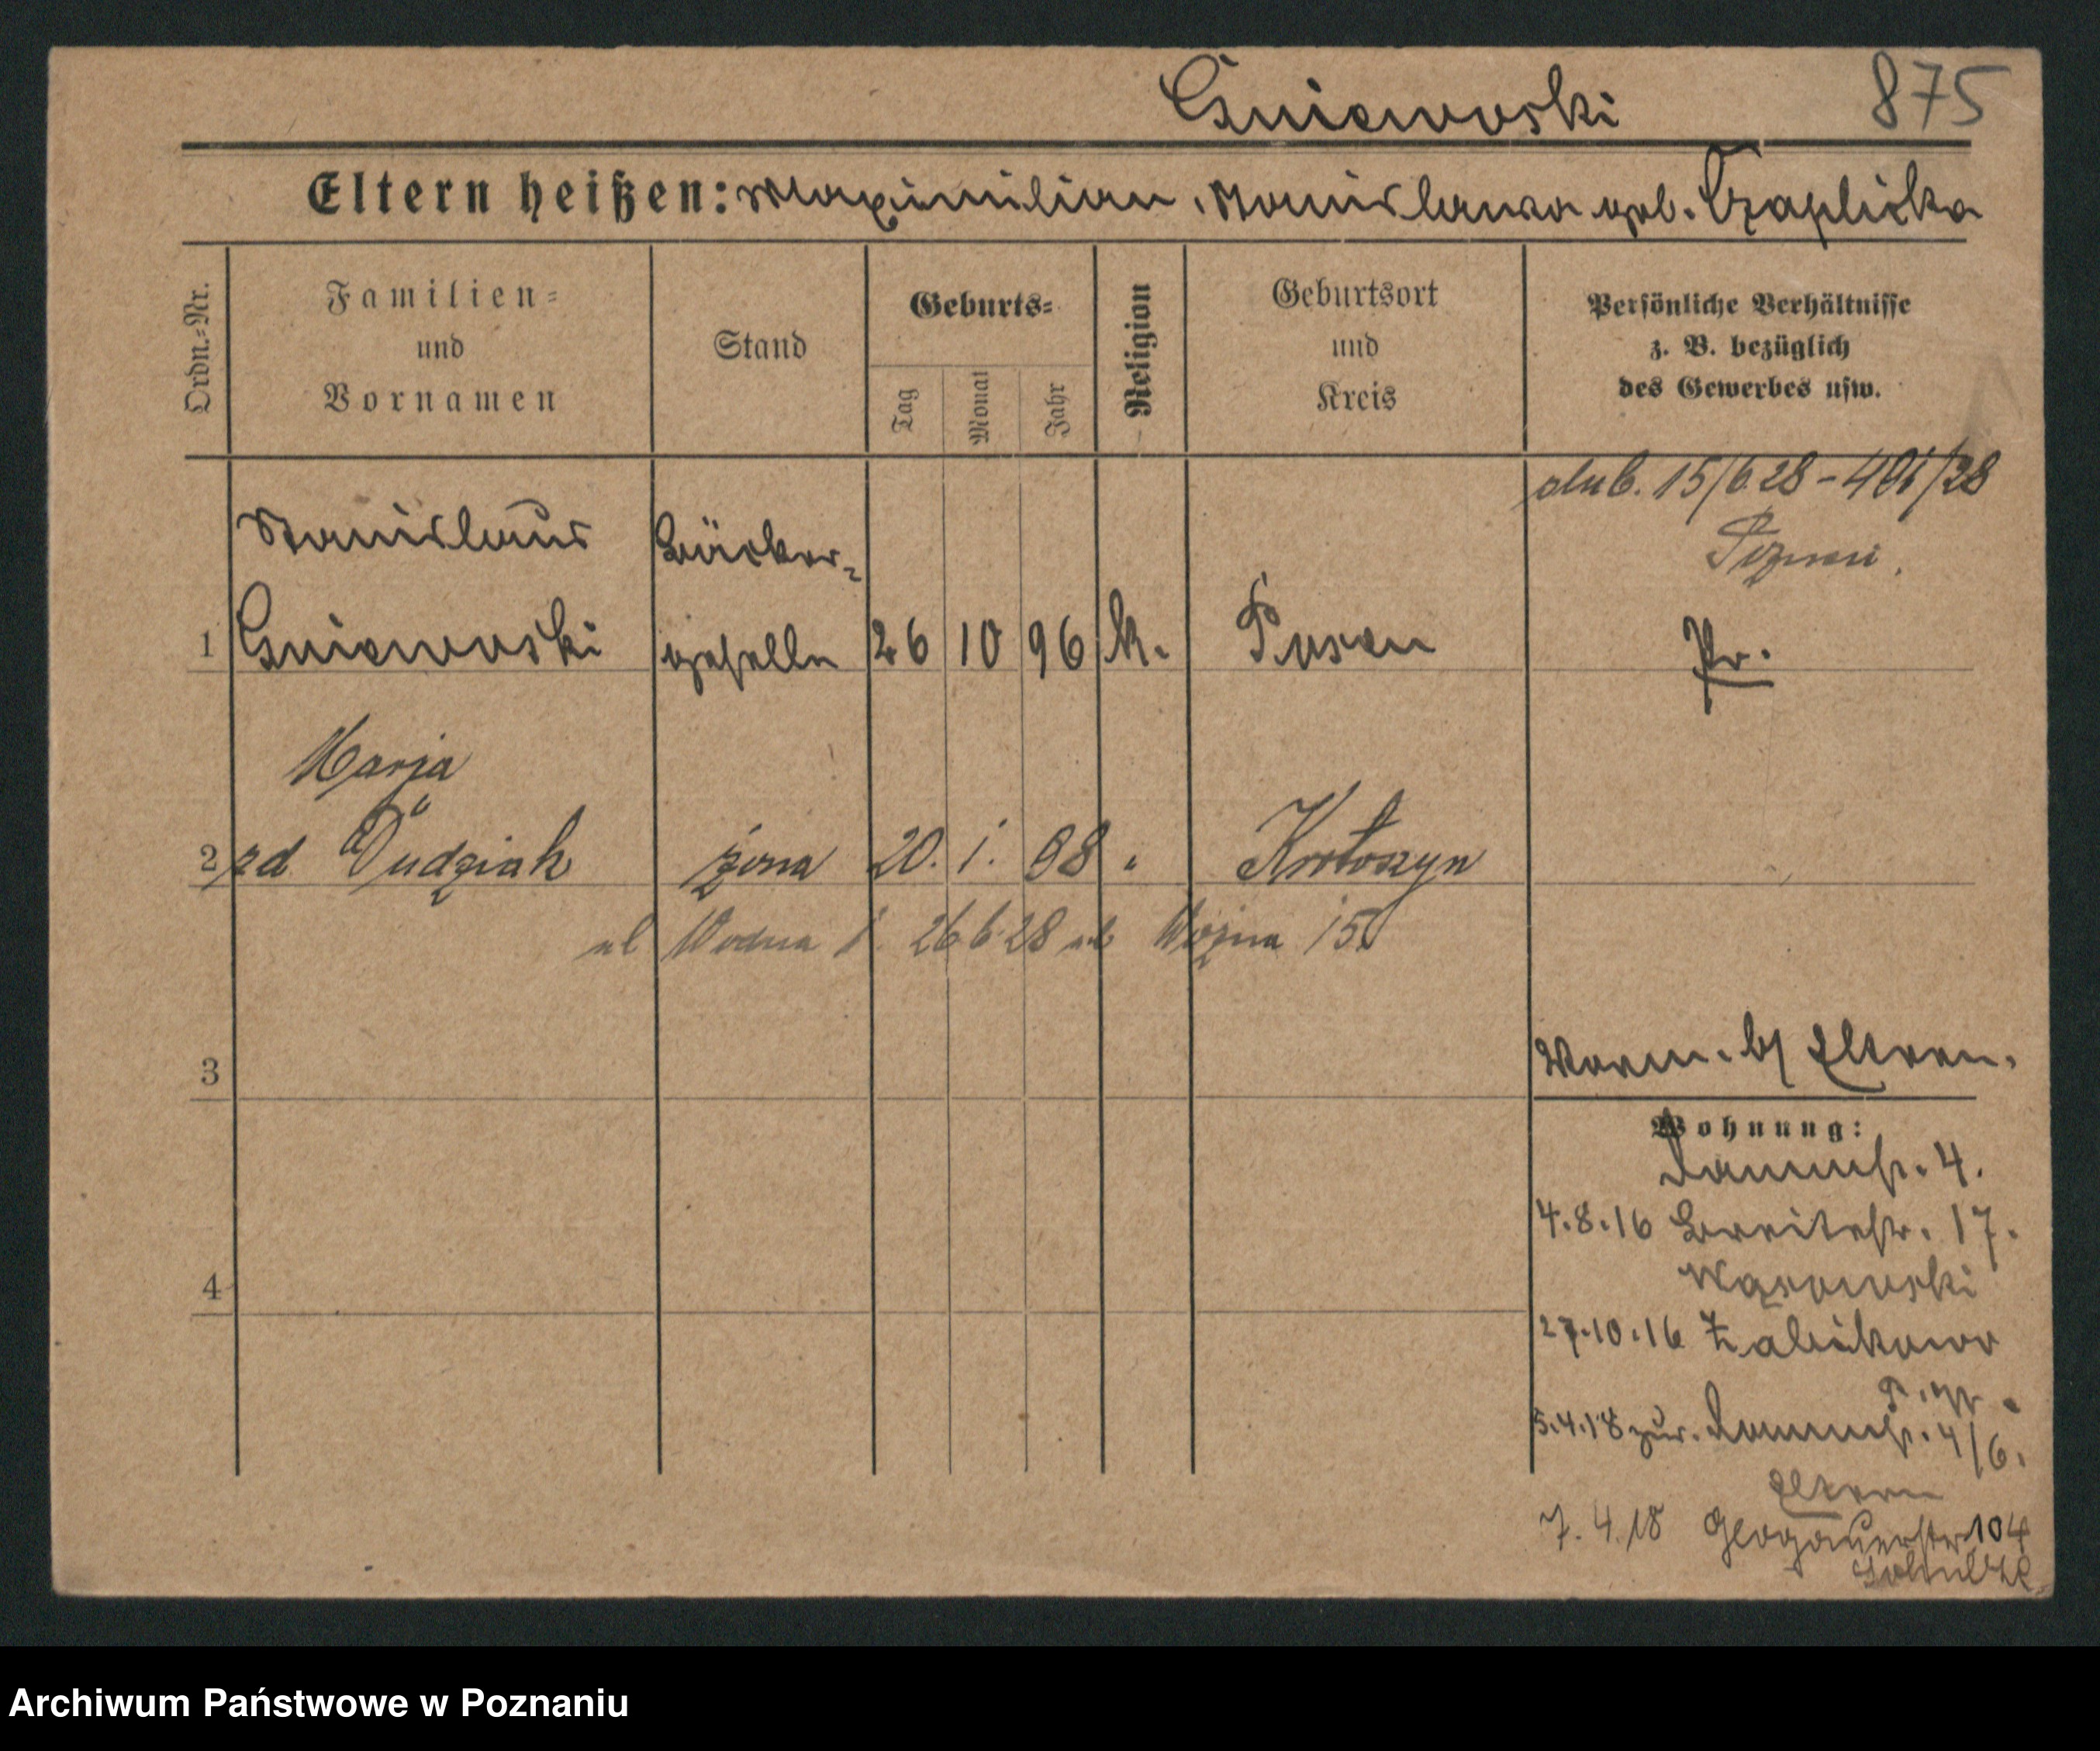 Gniewoski 875
Eltern heißen: Maximilian, Stanislawa geb. Czaplicka
Ordn.-Nr.
Familien-
und
Vornamen
Stand
Geburts-
Tag
Monat
Jahr
Religion
Geburtsort
und
Kreis
Persönliche Verhältnisse
z. B. bezüglich
des Gewerbes usw.
ślub. 15/6 28 - 401/28
Poznań.
Stanislaus Bäcker-
1 Gniewoski geselle 26 10 96 k. Posen Pr.
Marja
2 zd Dudziak żona 20. 1. 98 " Krotoszyn
ul Wodna 26 6 28 ul Woźna 15
3
Eltern.
Wohnung:
Dammstr. 4.
4.8.16 Breitestr. 17.
Wąsowski
4
27.10.16 Żabikowo
5.4.18 zur. Dammstr. 4/6.
Eltern
7.4.18 Glogauerstr 104
Archiwum Państwowe w Poznaniu